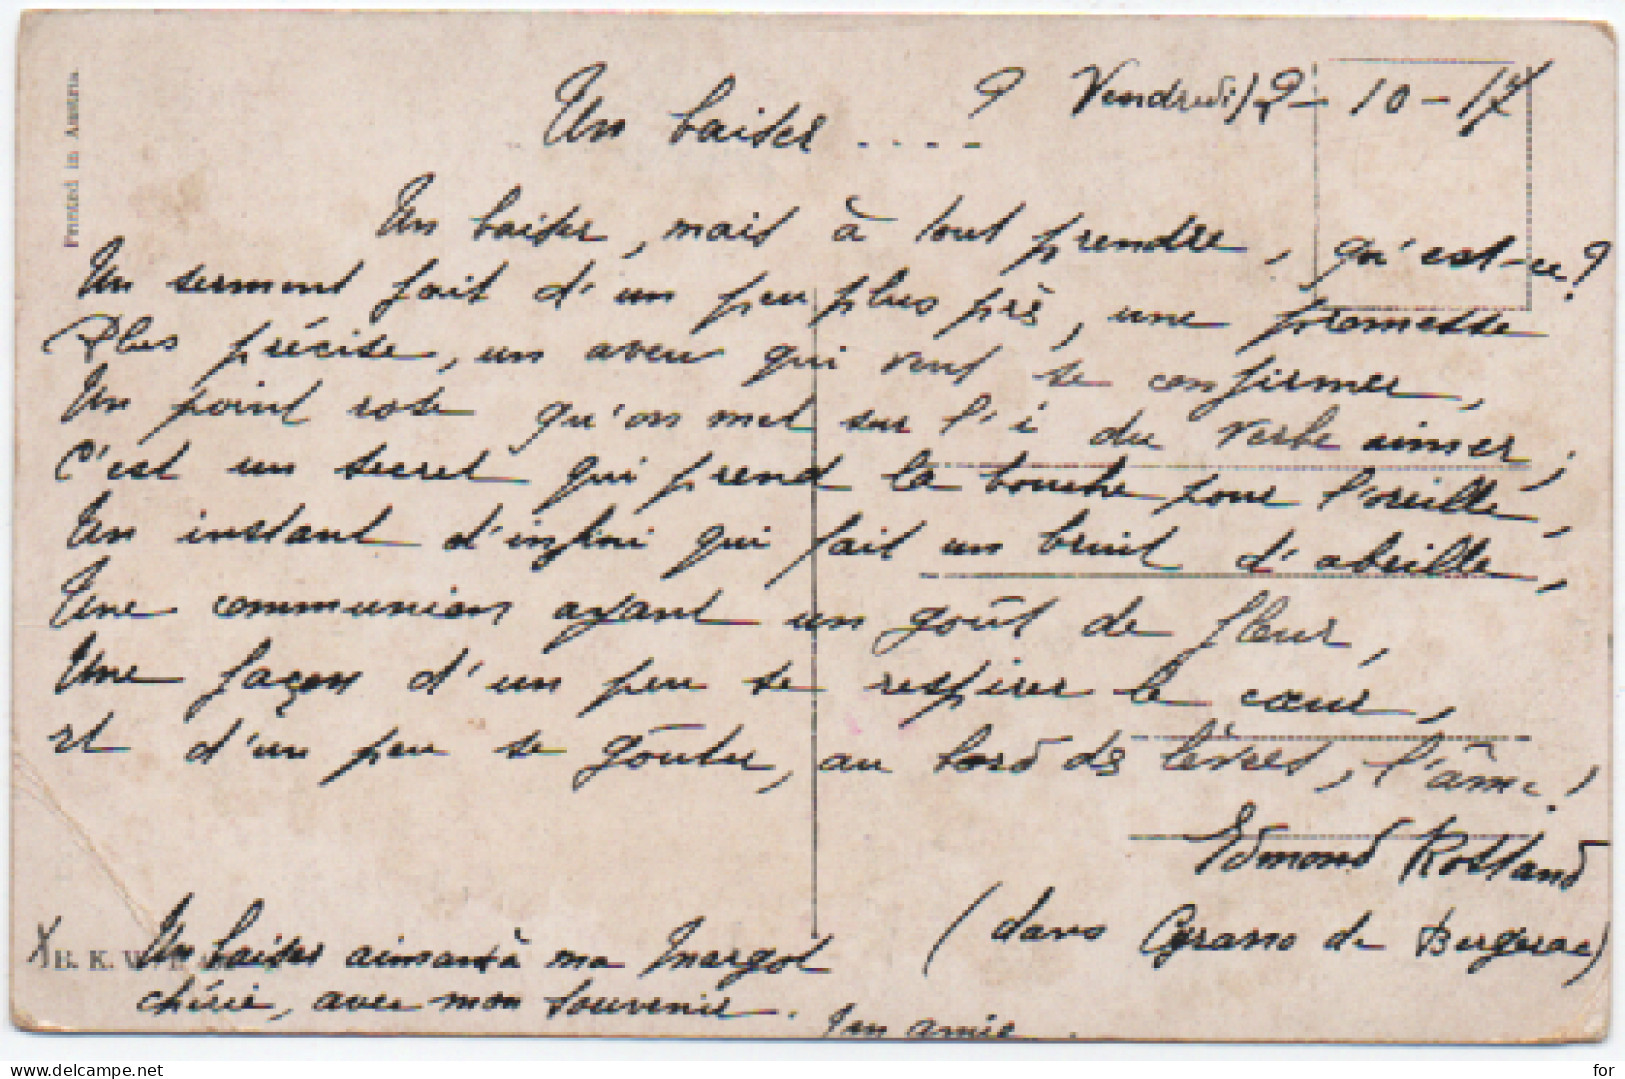 Printed in Austria.
Vendredi 12-10-17
Un baiser .... ?
Un baiser, mais à tout prendre, qu'est-ce?
Un serment fait d'un peu plus près, une promesse
Plus précise, un aveu qui veut se confirmer,
Un point rose qu'on met sur l'i du verbe aimer;
C'est un secret qui prend la bouche pour l'oreille,
Un instant d'infini qui fait un bruit d'abeille,
Une communion ayant un goût de fleur,
Une façon d'un peu se respirer le cœur,
et d'un peu se goûter, au bord des lèvres, l'âme!
Edmond Rostand
(dans Cyrano de Bergerac)
B. K. W. I.
Un baiser aimant à ma Margot
chérie, avec mon souvenir.
amie.
delcampe.net
for